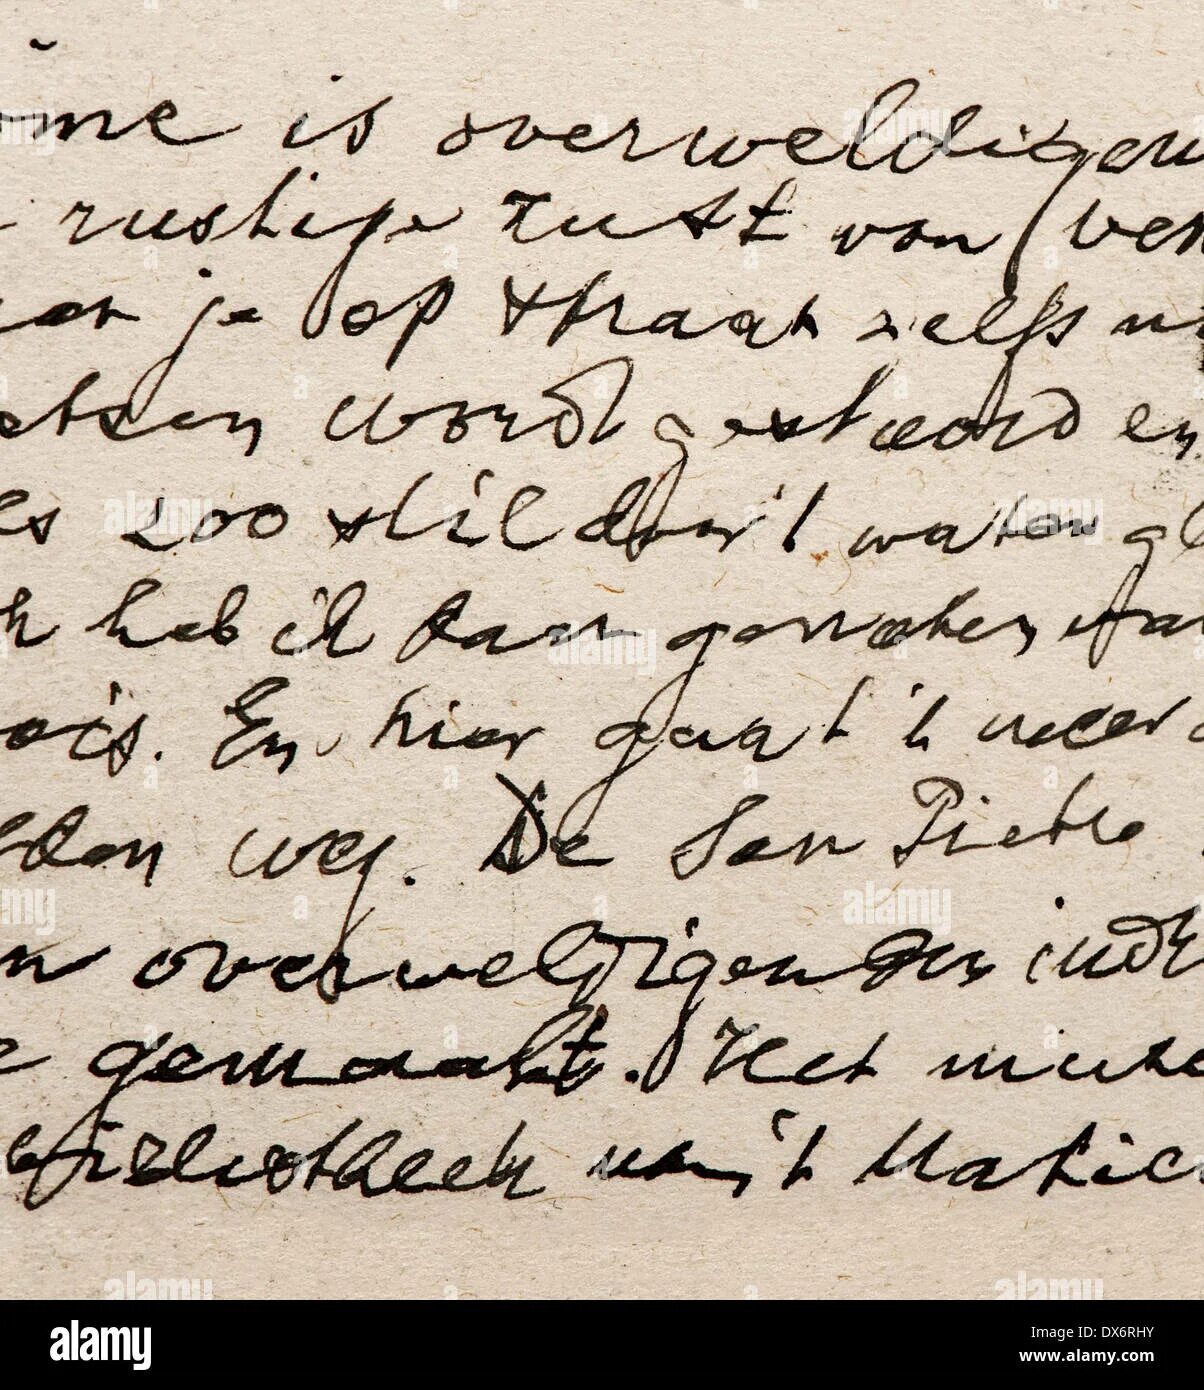 ome is overweldigen
rustige rust van Ven
aar je op straat zelfs n
etsen wordt gestoord en
es zoo stil door 't water gl
k heb ik daar genoten
ois. En hier gaat 't weer
den weg. De San Pietro
n overweldigenden indr
e gemaakt. Het muse
bibliotheek van 't Vatic
alamy
Image ID: DX6RHY
www.alamy.com